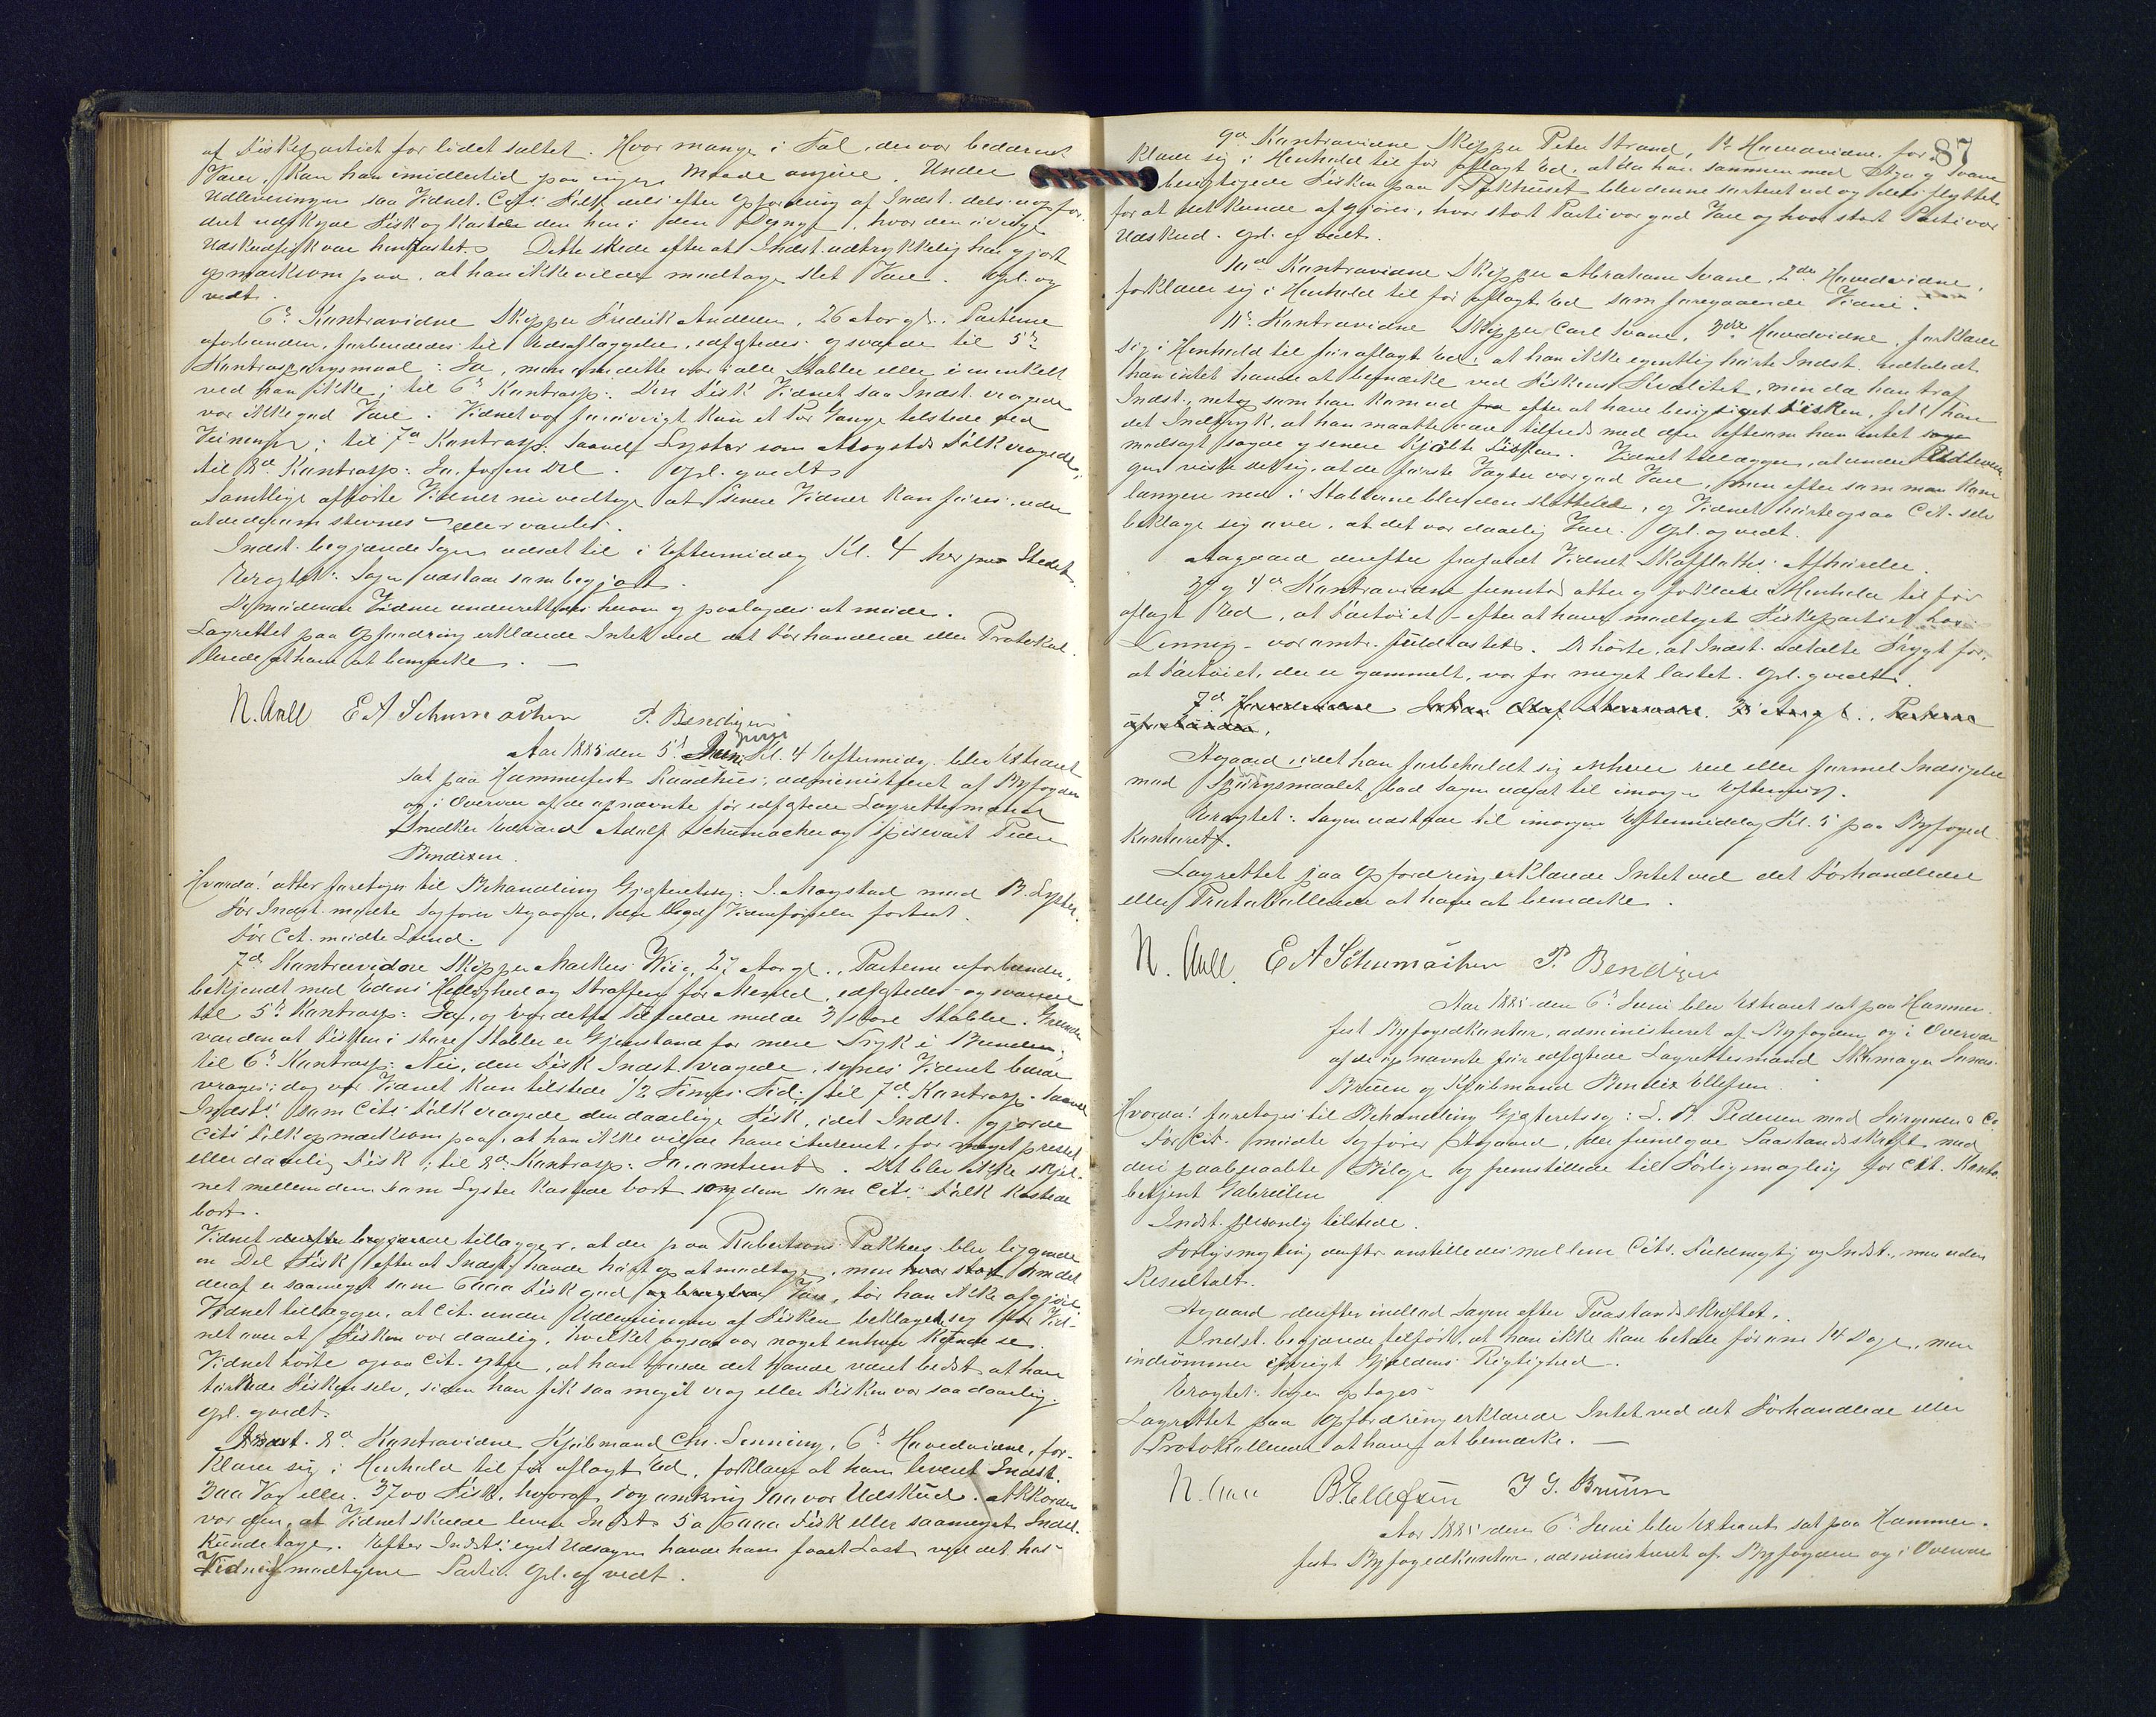 af Fiskepartiet for lidet saltet. Hvor mange i Tal, der var bedærvet
Vare, kan han imidlertid paa ingen Maade angive. Under
Udleveringen saa Vidnet Cits Folk dels efter Opfordring af Indst. dels uopfor-
dret udskyde Fisk og kastede den hen i den Dynge, hvor den øvrige
Udskudfisk var henkastet. Dette skede efter at Indst. udtrykkelig har gjort
opmærksom paa, at han ikke vilde modtage slet Vare. Opl. og
vedt.
6te Kontravidne Skipper Fredrik Andersen, 26 Aar gl., Parterne
uforbunden, forberededes til Edsaflæggelse, edfæstedes og svarede til 5te
Kontraspørgsmaal: Ja, men om dette var i alle Stabler eller i en enkelt
ved han ikke; til 6te Kontrasp: Den Fisk Vidnet saa Indst. vragede
var ikke god Vare. Vidnet var forøvrigt kun et Par Gange tilstede ved
Veiningen; til 7de Kontrasp: Saavel Lyster som Mogstads Folk vragede;
til 8de Kontrasp: Ja, for en Del. Opl. og vedt.
Samtlige afhørte Vidner nu vedtage at senere Vidner kan føres uden
at de dertil stevnes eller varsles.
Indst. begjærede Sagen udsat til i Eftermiddag Kl. 4 her paa Stedet.
Eragtet: Sagen udstaar som begjært.
De mødende Vidner underrettedes herom og paalagdes at møde.
Lagrettet paa Opfordring erklærede Intet ved det Forhandlede eller Protokol-
lerede at have at bemærke. —
N. Aall E A Schumacher P. Bendixen
Aar 1885 den 5te Juni Kl. 4 Eftermiddag blev Extraret
sat paa Hammerfest Raadhus, administreret af Byfogden
og i Overvær af de opnævnte før edfæstede Lagrettesmænd
Snedker Edvard Adolf Schumacher og Spisevært Peder
Bendixen.
Hvorda: atter foretoges til Behandling Gjæsteretssag: J. Mogstad mod B. Lyster.
For Indst. mødte Sagfører Aagaard, der begj. Vidneførselen fortsat.
For Cit. mødte Lund.
7de Kontravidne Skipper Markus Wiig, 27 Aar gl., Parterne uforbunden,
bekjendt med Edens Hellighed og Straffen for Mened, edfæstedes og svarede
til 5te Kontrasp: Ja, og var dette Tilfælde med de 3 store Stabler. Grunden
var den at Fisken i store Stabler er Gjenstand for mere Tryk i Bunden;
til 6te Kontrasp: Nei, den Fisk Indst vragede, synes Vidnet burde
vrages; dog var Vidnet kun tilstede ½ Times Tid; til 7de Kontrasp. Saavel
Indsts som Cits Folk vragede den daarlige Fisk, idet Indst. gjorde
Cits Folk opmærksom paa, at han ikke vilde have itureven, for meget presset
eller daarlig Fisk; til 8de Kontrasp: Ja, omtrent. Det blev ikke skjel-
net mellem den som Lyster kastede bort og den som Cits. Folk kastede
bort.
Vidnet derefter begjærede tillægger, at der paa Robertsons Pakhus blev liggende
en Del Fisk efter at Indst. havde hørt op at modtage, men hvor stort om det
deraf er saameget som 6000 Fisk god og brugbar Vare, tør han ikke afgjøre.
Vidnet tillægger, at Cit. under Udleveringen af Fisken beklagede sig for Vid-
net over at Fisken var daarlig, hvilket ogsaa var noget enhver kunde se.
Vidnet hørte ogsaa Cit. ytre, at han troede det havde været bedst at han
tørkede Fisken selv, siden han fik saa meget vrag eller Fisken var saa daarlig.
Opl. og vedt.
8de Kontravidne Kjøbmand Chr. Lenning, 6te Hovedvidne, for-
klarer sig i Henhold til før aflagt Ed, forklarer at ham leveret Indst.
300 Vog eller 3700 Fisk, hvoraf dog omkring 100 var Udskud. Akkorden
var den, at Vidnet skulde levere Indst. 5 a 6000 Fisk eller saameget Indst.
kunde tage. Efter Indsts eget Udsagn havde han faaet Last ved det hos
Vidnet modtagne Parti. Opl. og vedt.
87
9de Kontravidne Skipper Peter Strand, 1ste Hovedvidne, for-
klarer sig i Henhold til før aflagt Ed, at da han sammen med Aga og Svane
besigtigede Fisken paa Pakhuset blev denne sorteret ud og dels flyttet
for at det kunde afgjøres, hvor stort Parti var god Vare og hvor stort Parti var
Udskud. Opl. og vedt.
10de Kontravidne Skipper Abraham Svane, 2det Hovedvidne,
forklarer sig i Henhold til før aflagt Ed som foregaaende Vidne.
11te Kontravidne Skipper Carl Svane, 3die Hovedvidne, forklarer
sig i Henhold til før aflagt Ed: at han ikke egentlig hørte Indst. udtale at
han intet havde at bemærke ved Fiskens Kvalitet, men da han traf
Indst., netop som han kom ud fra efter at have besigtiget Fisken, fik han
det Indtryk, at han maatte være tilfreds med den eftersom han intet
modsagt sagde og senere kjøbte Fisken. Vidnet tillægger, at under Udleverin-
gen viste det sig, at de første Vægter var god Vare, men efter som man kom
længere ned i Stablerne blev den slettere, og Vidnet hørte ogsaa Cit. selv
beklage sig over, at det var daarlig Vare. Opl. og vedt.
Aagaard derefter frafaldt Vidnet Skafflaths Afhørelse.
3die og 4de Kontravidne fremstod atter og forklarer i Henhold til før
aflagt Ed, at Fartøiet – efter at have modtaget Fiskepartiet hos
Lenning – var omtr. fuldlastet. De hørte, at Indst. udtalte Frygt for,
at Fartøiet, der er gammelt, var for meget lastet. Opl. og vedt.
7de Hovedvidne Johan Olaf 35 Aar gl., Parterne
uforbunden,
Aagaard, idet han forbeholdt sig enhver reel eller formel Indsigelse
mod Spørgsmaalet, bad Sagen udsat til imorgen Eftermidg.
Eragtet: Sagen udstaar til imorgen Eftermiddag Kl. 5 paa Byfoged-
kontoret.
Lagrettet paa Opfordring erklærede Intet ved det Forhandlede
eller Protokollerede at have at bemærke.
N. Aall. E A Schumacher P. Bendixen
Aar 1885 den 6te Juni blev Extraret sat paa Hammer-
fest Byfogedkontor, administreret af Byfogden og i Overvær
af de opnævnte før edfæstede Lagrettesmænd Skomager Jonas
Bruun og Kjøbmand Bendix Ellefsen
Hvorda: foretoges til Behandling Gjæsteretssag: L. B. Pedersen mod Jürgensen & Co
For Cit. mødte Sagfører Aagaard, der fremlagde Paastandsskrift med
deri paaberaabte Bilage og fremstillede til Forligsmægling for Cit. Kontor-
betjent Gabrielsen
Indst. personlig tilstede.
Forligsmægling derefter anstilledes mellem Cits. Fuldmægtig og Indst., men uden
Resultat.
Aagaard derefter indlod Sagen efter Paastandsskriftet.
Indst. begjærede tilført, at han ikke kan betale før om 14 Dage, men
indrømmer forøvrigt Gjældens Rigtighed.
Eragtet: Sagen optages.
Lagrettet paa Opfordring erklærede Intet ved det Forhandlede eller
Protokollerede at have at bemærke. —
N. Aall B. Ellefsen J G. Bruun
Aar 1885 den 6te Juni blev Extraret sat paa Hammer-
fest Byfogedkontor, administreret af Byfogden og i Overvær